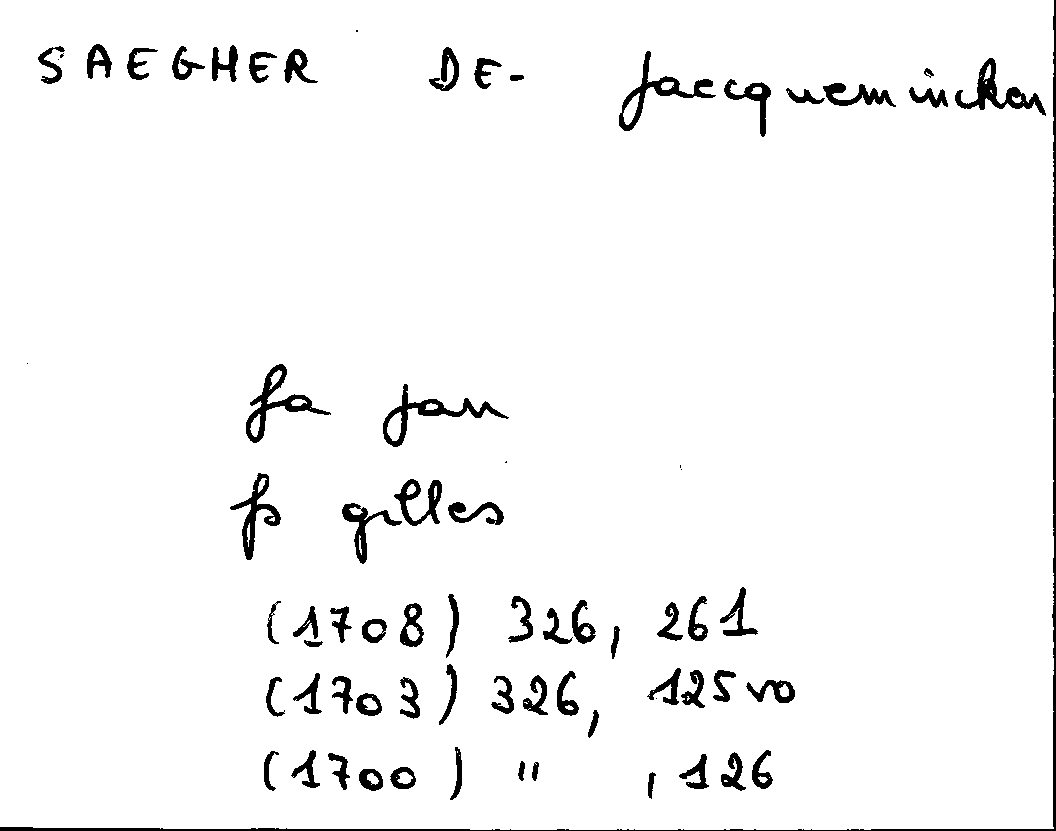 SAEGHER DE- Jaecquemincken
fa Jan
fs gilles
(1708) 326, 261
(1703) 326, 125vo
(1700) " , 126